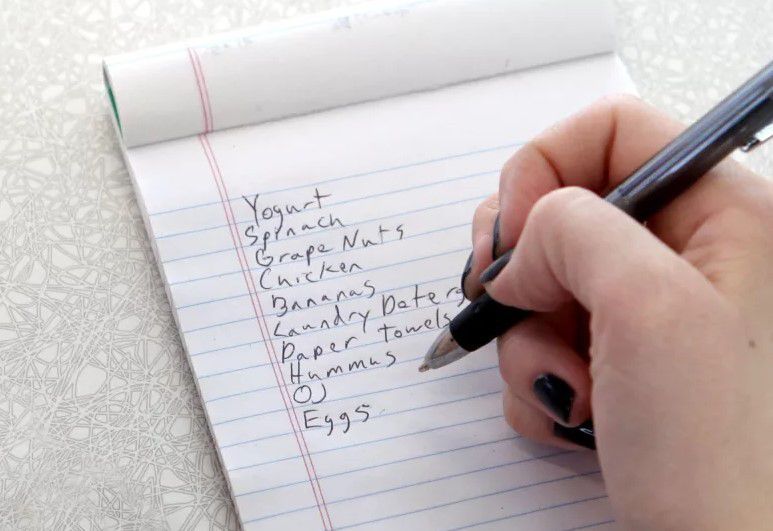 Yogurt
Spinach
Grape Nuts
Chicken
Bananas
Laundry Deterg
Paper Towels
Hummus
OJ
Eggs